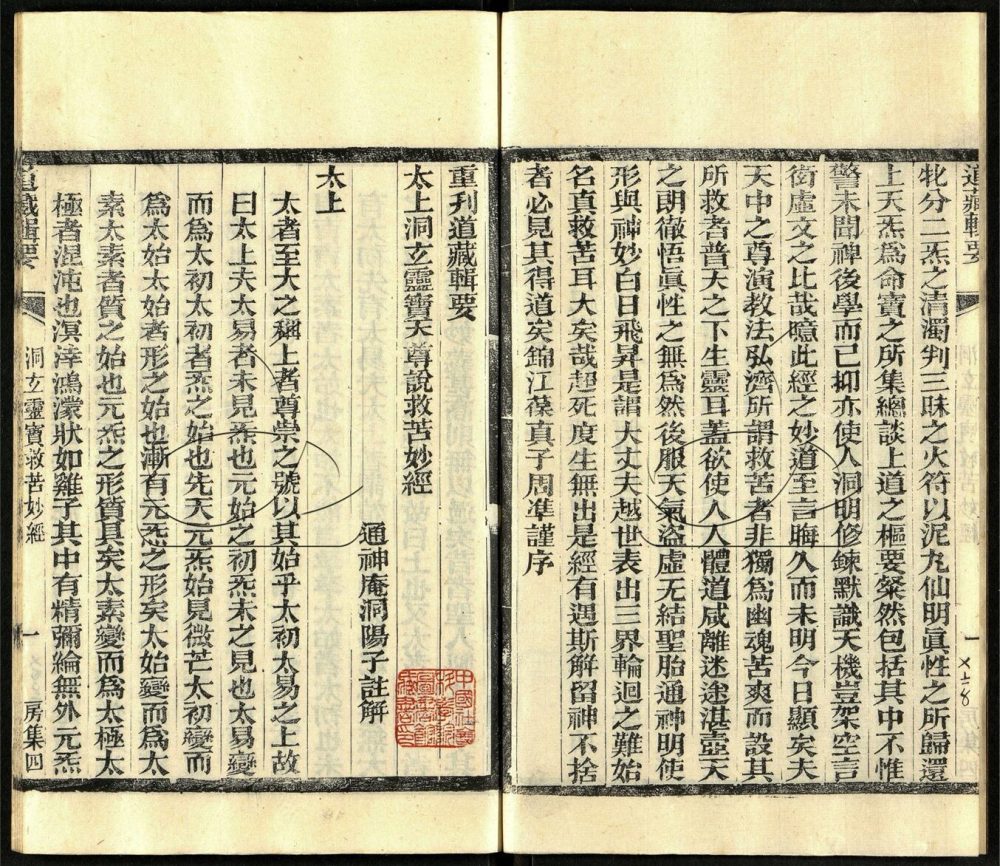 道藏輯要
牝分二炁之清濁判三昧之火符以泥丸仙明眞性之所歸還
上天炁爲命寶之所集總談上道之樞要粲然包括其中不惟
警未聞裨後學而已抑亦使人洞明修鍊默識天機豈架空言
衒虛文之比哉噫此經之妙道至言晦久而未明今日顯矣夫
天中之尊演教法弘濟所謂救苦者非獨爲幽魂苦爽而設其
所救者普天之下生靈耳蓋欲使人人體道咸離迷途湛壺天
之朗徹悟眞性之無爲然後服天氣盜虛无結聖胎通神明使
形與神妙白日飛昇是謂大丈夫越世表出三界輪迴之難始
名真救苦耳大矣哉超死度生無出是經有遇斯解留神不捨
者必見其得道矣錦江葆真子周準謹序
重刊道藏輯要
太上洞玄靈寶天尊說救苦妙經
通神庵洞陽子註解
太上
太者至大之稱上者尊崇之號以其始乎太初太易之上故
曰太上夫太易者未見炁也元始之初炁未之見也太易變
而爲太初太初者炁之始也先天元炁始見微芒太初變而
爲太始太始者形之始也漸有元炁之形矣太始變而爲太
素太素者質之始也元炁之形質具矣太素變而爲太極太
極者混沌也溟涬鴻濛狀如雞子其中有精彌綸無外元炁
道藏輯要
洞玄靈寶救苦妙經
一
房集四